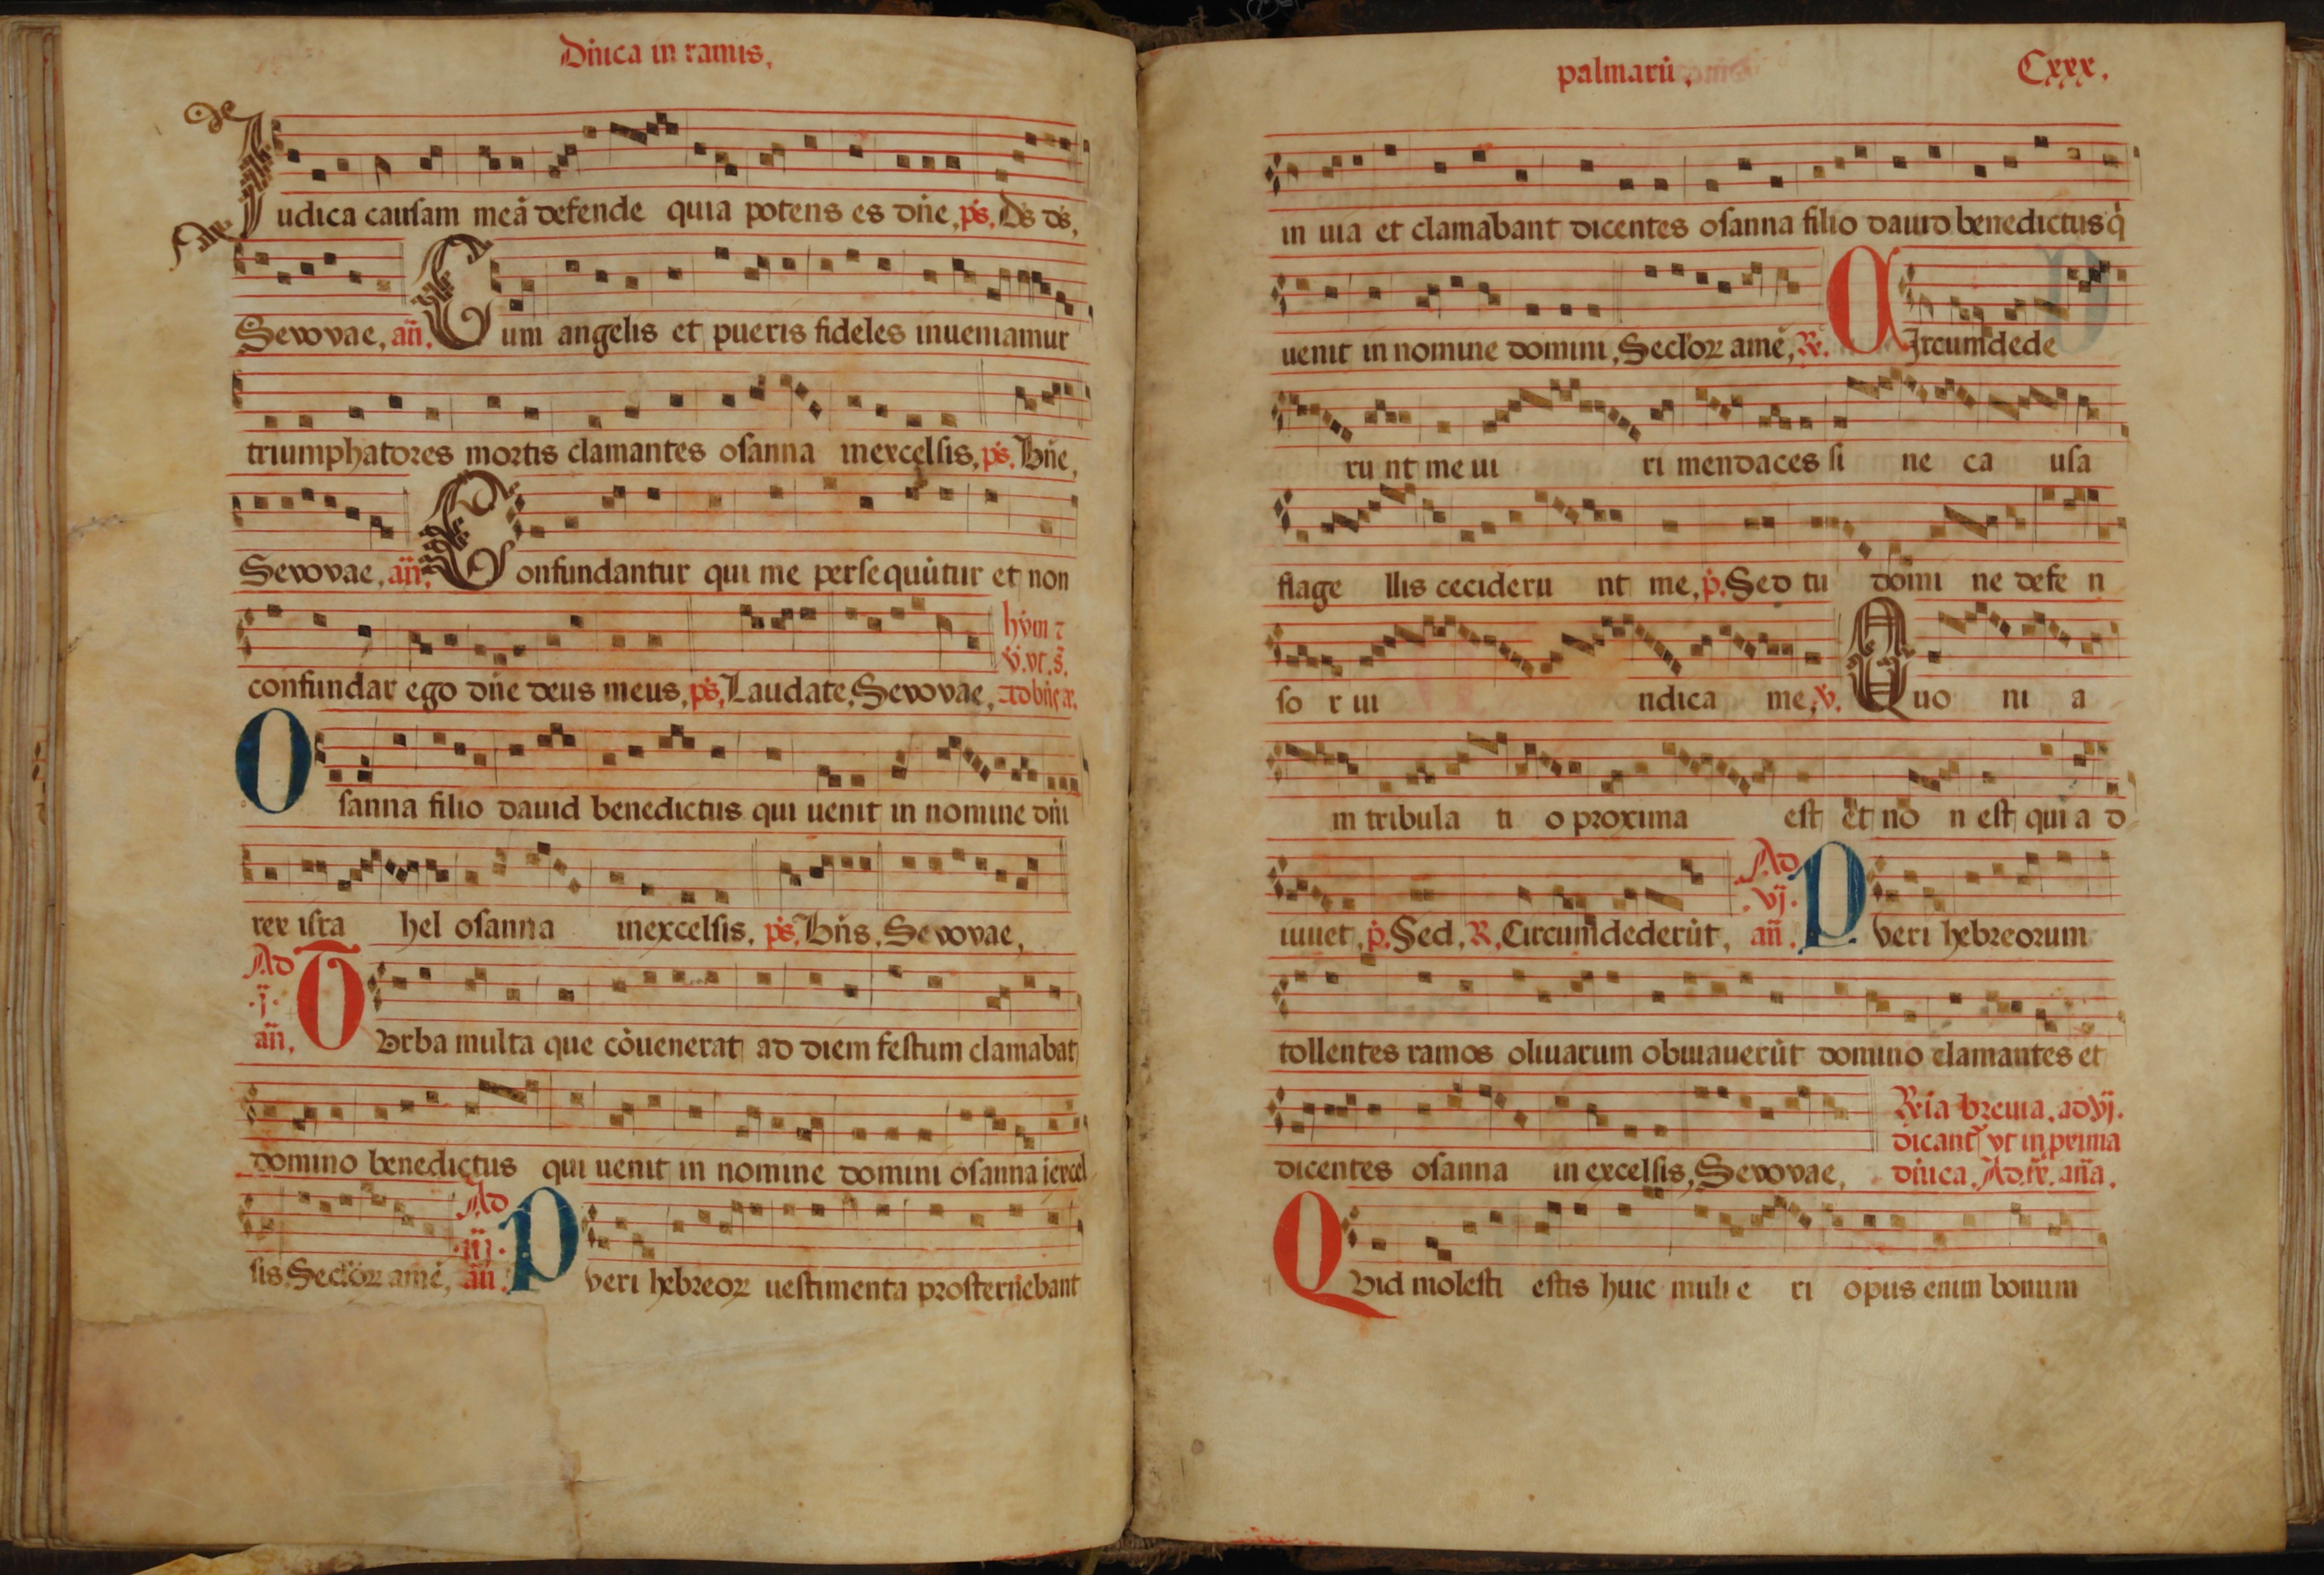 Dnica in ramis.
Judica causam meā defende quia potens es dn̄e, ps̄. Ds̄ ds̄,
Seuouae, an̄. Cum angelis et pueris fideles inueniamur
triumphatores mortis clamantes osanna inexcelsis, ps̄. Bn̄e,
Seuouae, an̄. Confundantur qui me persequūtur et non
hym̄ ⁊
v̄. vt. s̄.
confundar ego dn̄e deus meus, ps̄, Laudate, Seuouae,
Osanna filio dauid benedictus qui uenit in nomine dn̄i
rex isra hel osanna inexcelsis, ps̄. Bn̄s, Seuouae,
Ad
.j.
an̄. Turba multa que cōuenerat ad diem festum clamabat
domino benedictus qui uenit in nomine domini osanna iexcel
Ad
.iij.
sis, Secl'oꝝ amē, an̄. Pueri hebreoꝝ uestimenta prosternebant
palmarū. Cxxx.
in uia et clamabant dicentes osanna filio dauid benedictus q̇
uenit in nomine domini, Secl'oꝝ amē, R̄. Circumdede
ru nt me ui ri mendaces si ne ca usa
flage llis cecideru nt me, p̄. Sed tu domi ne defe n
so r ui ndica me, v̄. Quo ni a
m tribula ti o proxima est et no n est qui a d
Ad
.vj.
iuuet, p̄. Sed, R. Circumdederūt, an̄. Pueri hebreorum
tollentes ramos oliuarum obuiauerūt domino clamantes et
R̄ia breuia. ad vj.
dicant᷑ vt in prima
dicentes osanna in excelsis, Seuouae, dn̄ica. Ad. ań̄a.
Quid molesti estis huic muli e ri opus enim bonum